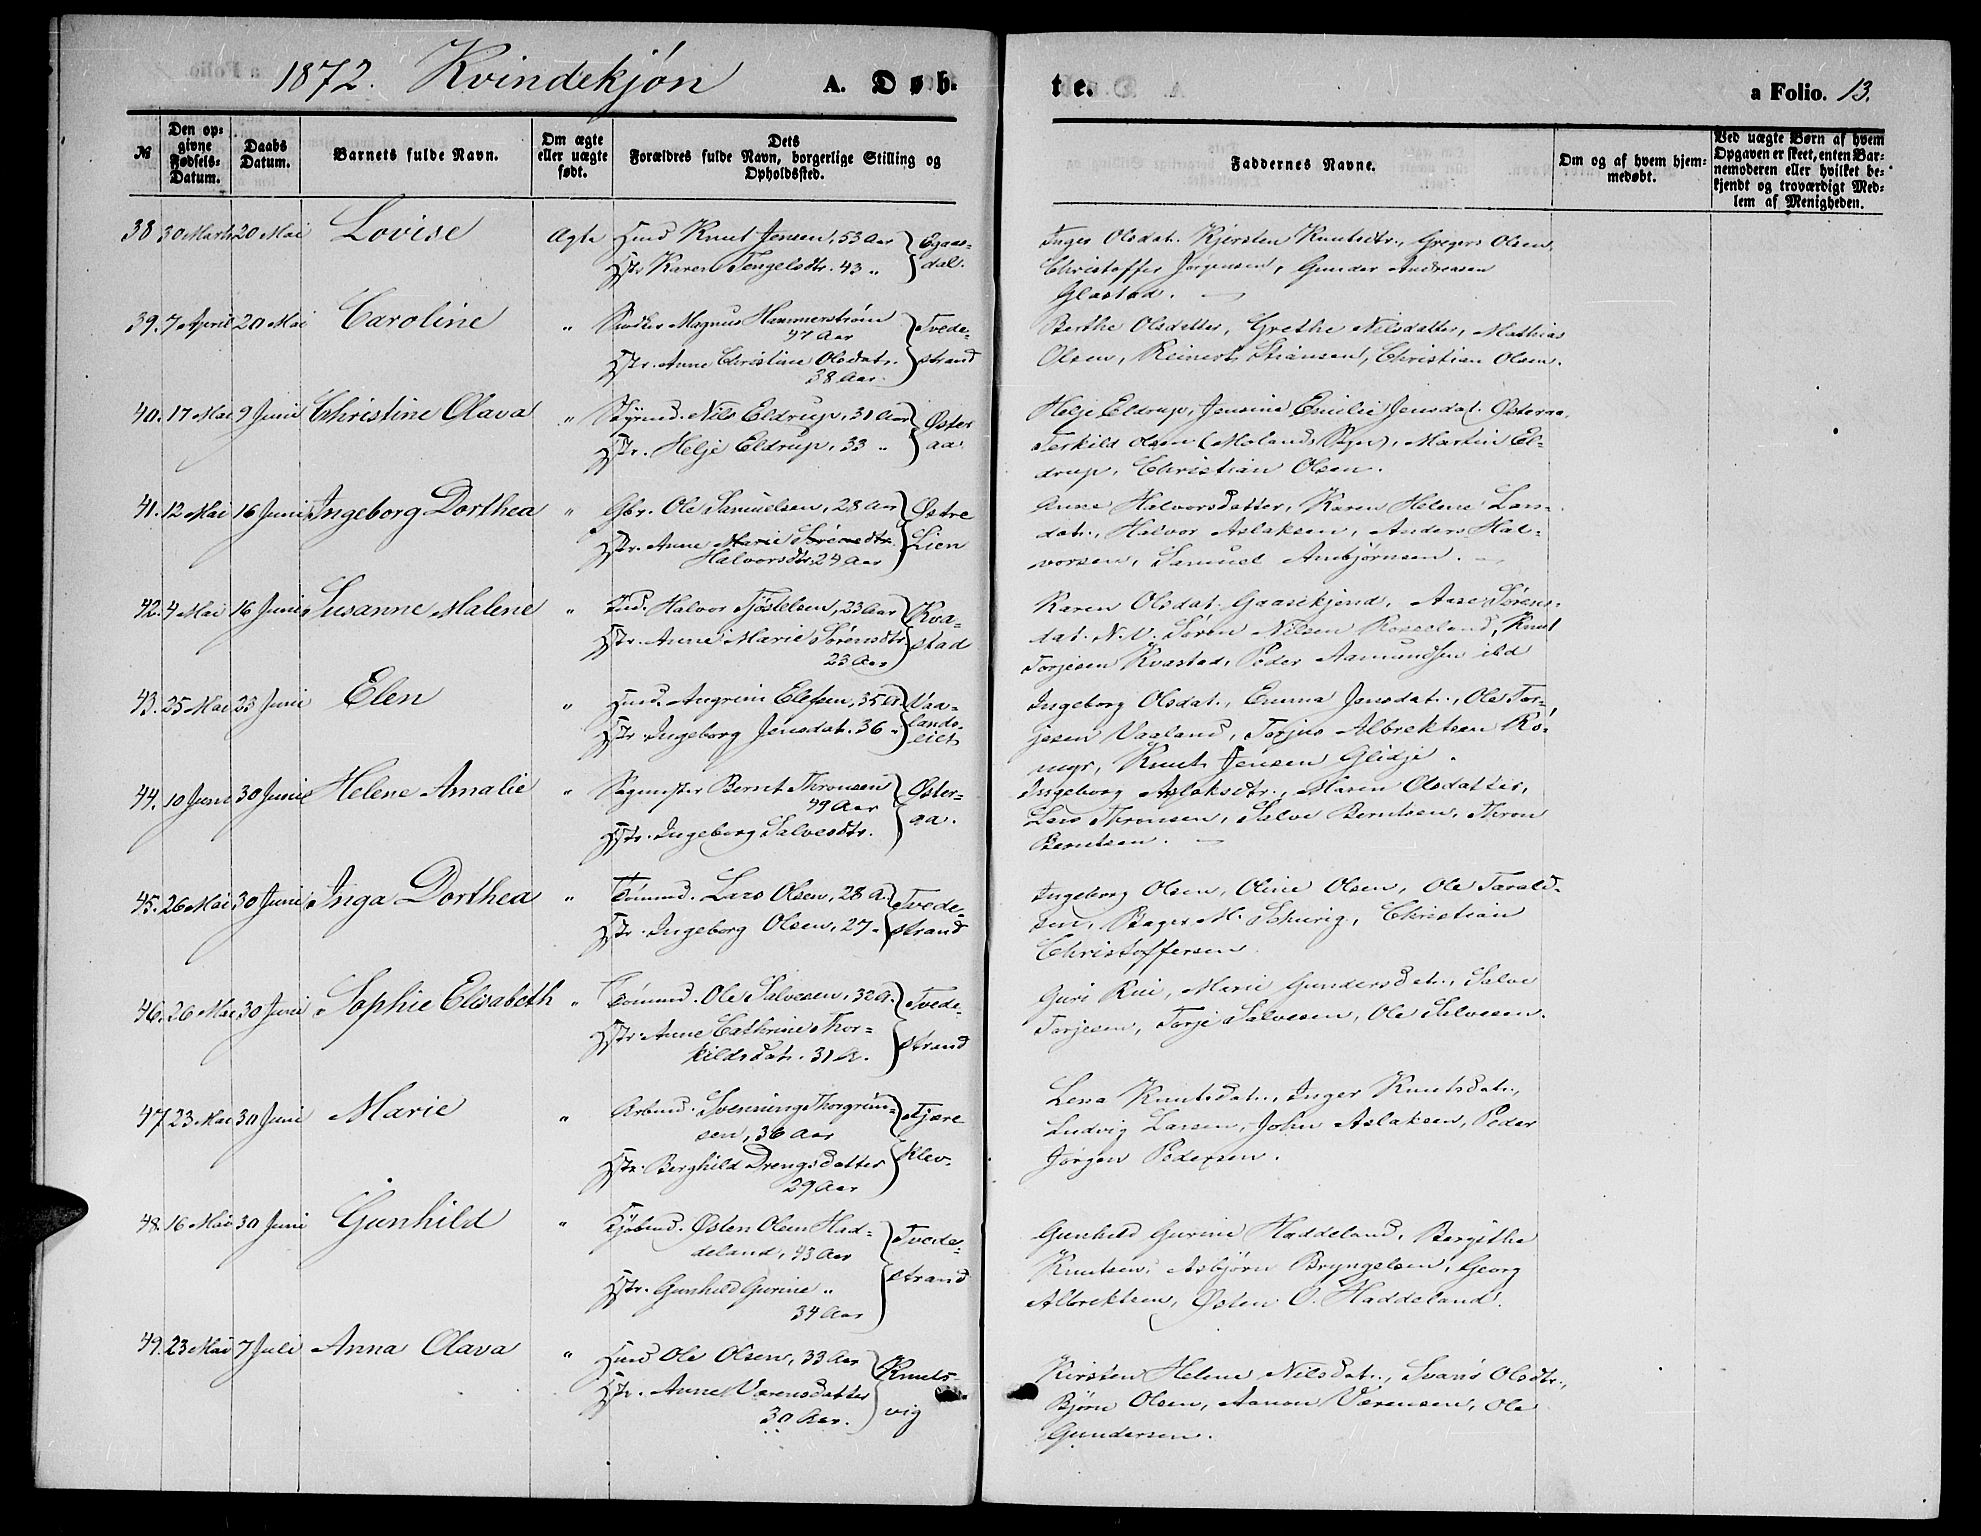 1872. Kvindekjøn A. Døb- te. a Folio. 13.
№
Den op-
givne
Fødsels-
Datum.
Daabs
Datum.
Barnets fulde Navn.
Om ægte
eller uægte
født.
Dets
Forældres fulde Navn, borgerlige Stilling og
Opholdssted.
Faddernes Navne.
Om og af hvem hjem-
medøbt.
Ved uægte Børn af hvem
Opgaven er skeet, enten Bar-
nemoderen eller hvilket be-
kjendt og troværdigt Med-
lem af Menigheden.
38 30 Marts 20 Mai Lovise Ægte Husd Knut Jensen, 53 Aar Egaas-
Hstr. Karen Tengelsdtr. 43 " dal.
Inger Olsdat. Kjersten Knutsdtr., Gregers Olsen,
Christoffer Jørgensen, Gunder Andreasen
Glastad.
39. 7 April 20 Mai Caroline " Snedker Magnus Hammerstrøm Tvede-
47 Aar
Hstr. Anne Christine Olsdatr. strand
38 Aar.
Berthe Olsdatter, Grethe Nilsdatter, Mathias
Olsen, Reinert Hansen, Christian Olsen.
40. 17 Mai 9 Juni Christine Olava " Nils Eldrup, 31 Aar Øster
Hstr. Helje Eldrup, 33 " aa.
Helje Eldrup, Jensine Emilie Jensdat. Østeraa,
Terkild Olsen (Molands Sogn), Martin El-
drup, Christian Olsen.
41. 12 Mai 16 Juni Ingeborg Dorthea " Gbr. Ole Samuelsen, 28 Aar Østre
Hstr. Anne Marie Sørensdtr. Lien
Halvorsdtr. 24 Aar
Anne Halvorsdatter, Karen Helene Lars-
datr., Halvor Aslaksen, Anders Hal-
vorsen, Samuel Ambjørnsen.
42. 4 Mai 16 Juni Susanne Malene " Ind. Halvor Tjøstelsen, 23 Aar Kva-
Hstr. Anne Marie Sørensdtr. stad
23 Aar
Karen Olsdat. Gaasekjend, Aase Sørens-
dat. N. V. Søren Nilsen Roseland, Knut
Torjesen Kvastad, Peder Aamundsen ibd
43. 25 Mai 23 Juni Elen " Husd. Angrim Elefsen, 35 A. Vaa-
Hstr. Ingeborg Jensdat. 36 " lands-
eiet
Ingeborg Olsdat., Emma Jensdat., Ole Tor-
jesen Vaaland, Torjus Albrektsen Rø-
myr, Knut Jensen Glidje.
44. 10 Juni 30 Juni Helene Amalie " Sagmester Bernt Thronsen Øster-
49 Aar
Hstr. Ingeborg Salvesdtr. aa.
Ingeborg Aslaksdtr., Maren Olsdatter,
Lars Thronsen, Salve Berntsen, Thron
Berntsen.
45. 26 Mai 30 Juni Inga Dorthea " Tømmd. Lars Olsen, 28 A. Tvede-
Hstr. Ingeborg Olsen, 27 " strand
Ingeborg Olsen, Oline Olsen, Ole Tarald-
sen, Bager M. Schurig, Christian
Christoffersen
46. 26 Mai 30 Juni Sophie Elisabeth " Tømmd. Ole Salvesen, 32 A. Tvede-
Hstr. Anne Cathrine Thor-
kildsdatr. 31 A. strand
Guri Rui, Marie Gundersdatr., Salve
Torjesen, Torje Salvesen, Ole Salvesen.
47. 23 Mai 30 Juni Marie " Arbmd. Svenning Thorgrim- Kjære
sen, 36 Aar
Hstr. Berghild Drengsdatter Klev.
29 Aar
Lena Knutsdat., Inger Knutsdat.,
Ludvig Larsen, John Aslaksen, Peder
Jørgen Pedersen.
48. 16 Mai 30 Juni Gunhild " Kjøbmd. Østen Olsen Had- Tvede-
deland, 43 Aar
Hstr. Gunhild Gurine " strand
34 Aar
Gunhild Gurine Haddeland, Bergithe
Knutsen, Asbjørn Bryngelsen, Georg
Albrektsen, Østen O. Haddeland.
49. 23 Mai 7 Juli Anna Olava " Husd Ole Olsen, 33 Aar Knuts-
Hstr. Anne Værensdatter
30 Aar. vig
Kirsten Helene Nilsdat., Olsdtr.,
Bjørn Olsen, Aanon Værensen, Ole
Gundersen.